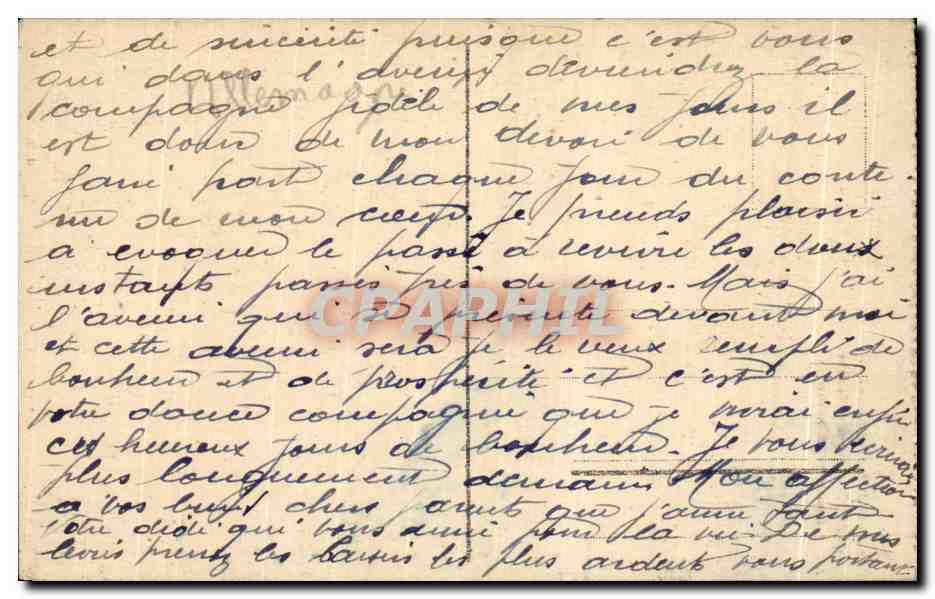 et de sincérité puisque c'est vous
qui dans l'avenir deviendrez la
Allemagne
compagne fidèle de mes jours il
est donc de mon devoir de vous
faire part chaque jour du conte-
nu de mon cœur. Je prends plaisir
a evoquer le passé à revivre les doux
instants passés près de vous. Mais j'ai
CPAPHIL
l'avenir qui se présente devant moi
et cette avenir sera je le veux rempli de
bonheur et de prospérité et c'est en
votre douce compagnie que je vivrai enfin
ces heureux jours de bonheur. Je vous écrirai
plus longuement demain Mon affection
a vos chers parents que j'aime tant
votre didi qui vous aime pour la vie De mes
levres prenez les baisers les plus ardents vous portant